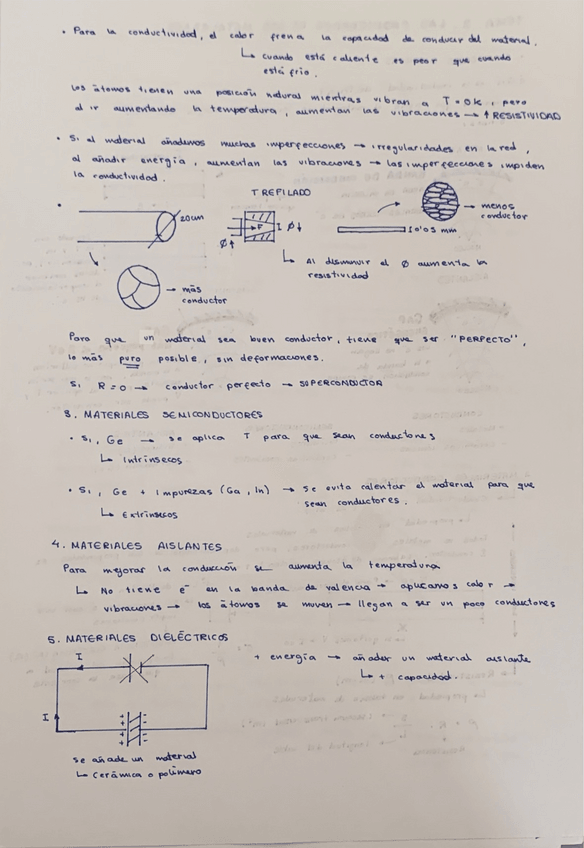 • Para la conductividad, el calor frena la capacidad de conducir del material.
↳ cuando está caliente es peor que cuando
está frío.
Los átomos tienen una posición natural mientras vibran a T=0K, pero
al ir aumentando la temperatura, aumentan las vibraciones → ↑ RESISTIVIDAD
• Si al material añadimos muchas imperfecciones → irregularidades en la red,
al añadir energía, aumentan las vibraciones → las imperfecciones impiden
la conductividad.
TREFILADO
20um
F
Ø↑
I Ø↓
I 0'05 mm
→ menos
conductor
→ más
conductor
↳ Al disminuir el Ø aumenta la
resistividad
Para que un material sea buen conductor, tiene que ser "PERFECTO",
lo más puro posible, sin deformaciones.
Si R=0 → conductor perfecto → SUPERCONDUCTOR
3. MATERIALES SEMICONDUCTORES
• Si, Ge → se aplica T para que sean conductores
↳ Intrínsecos
• Si, Ge + impurezas (Ga, In) → Se evita calentar el material para que
sean conductores.
↳ Extrínsecos
4. MATERIALES AISLANTES
Para mejorar la conducción se aumenta la temperatura
↳ No tiene e⁻ en la banda de valencia → aplicamos calor →
vibraciones → los átomos se mueven → llegan a ser un poco conductores
5. MATERIALES DIELÉCTRICOS
I
I
+ energía → añadir un material aislante
↳ + capacidad.
se añade un material
↳ Cerámica o polímero